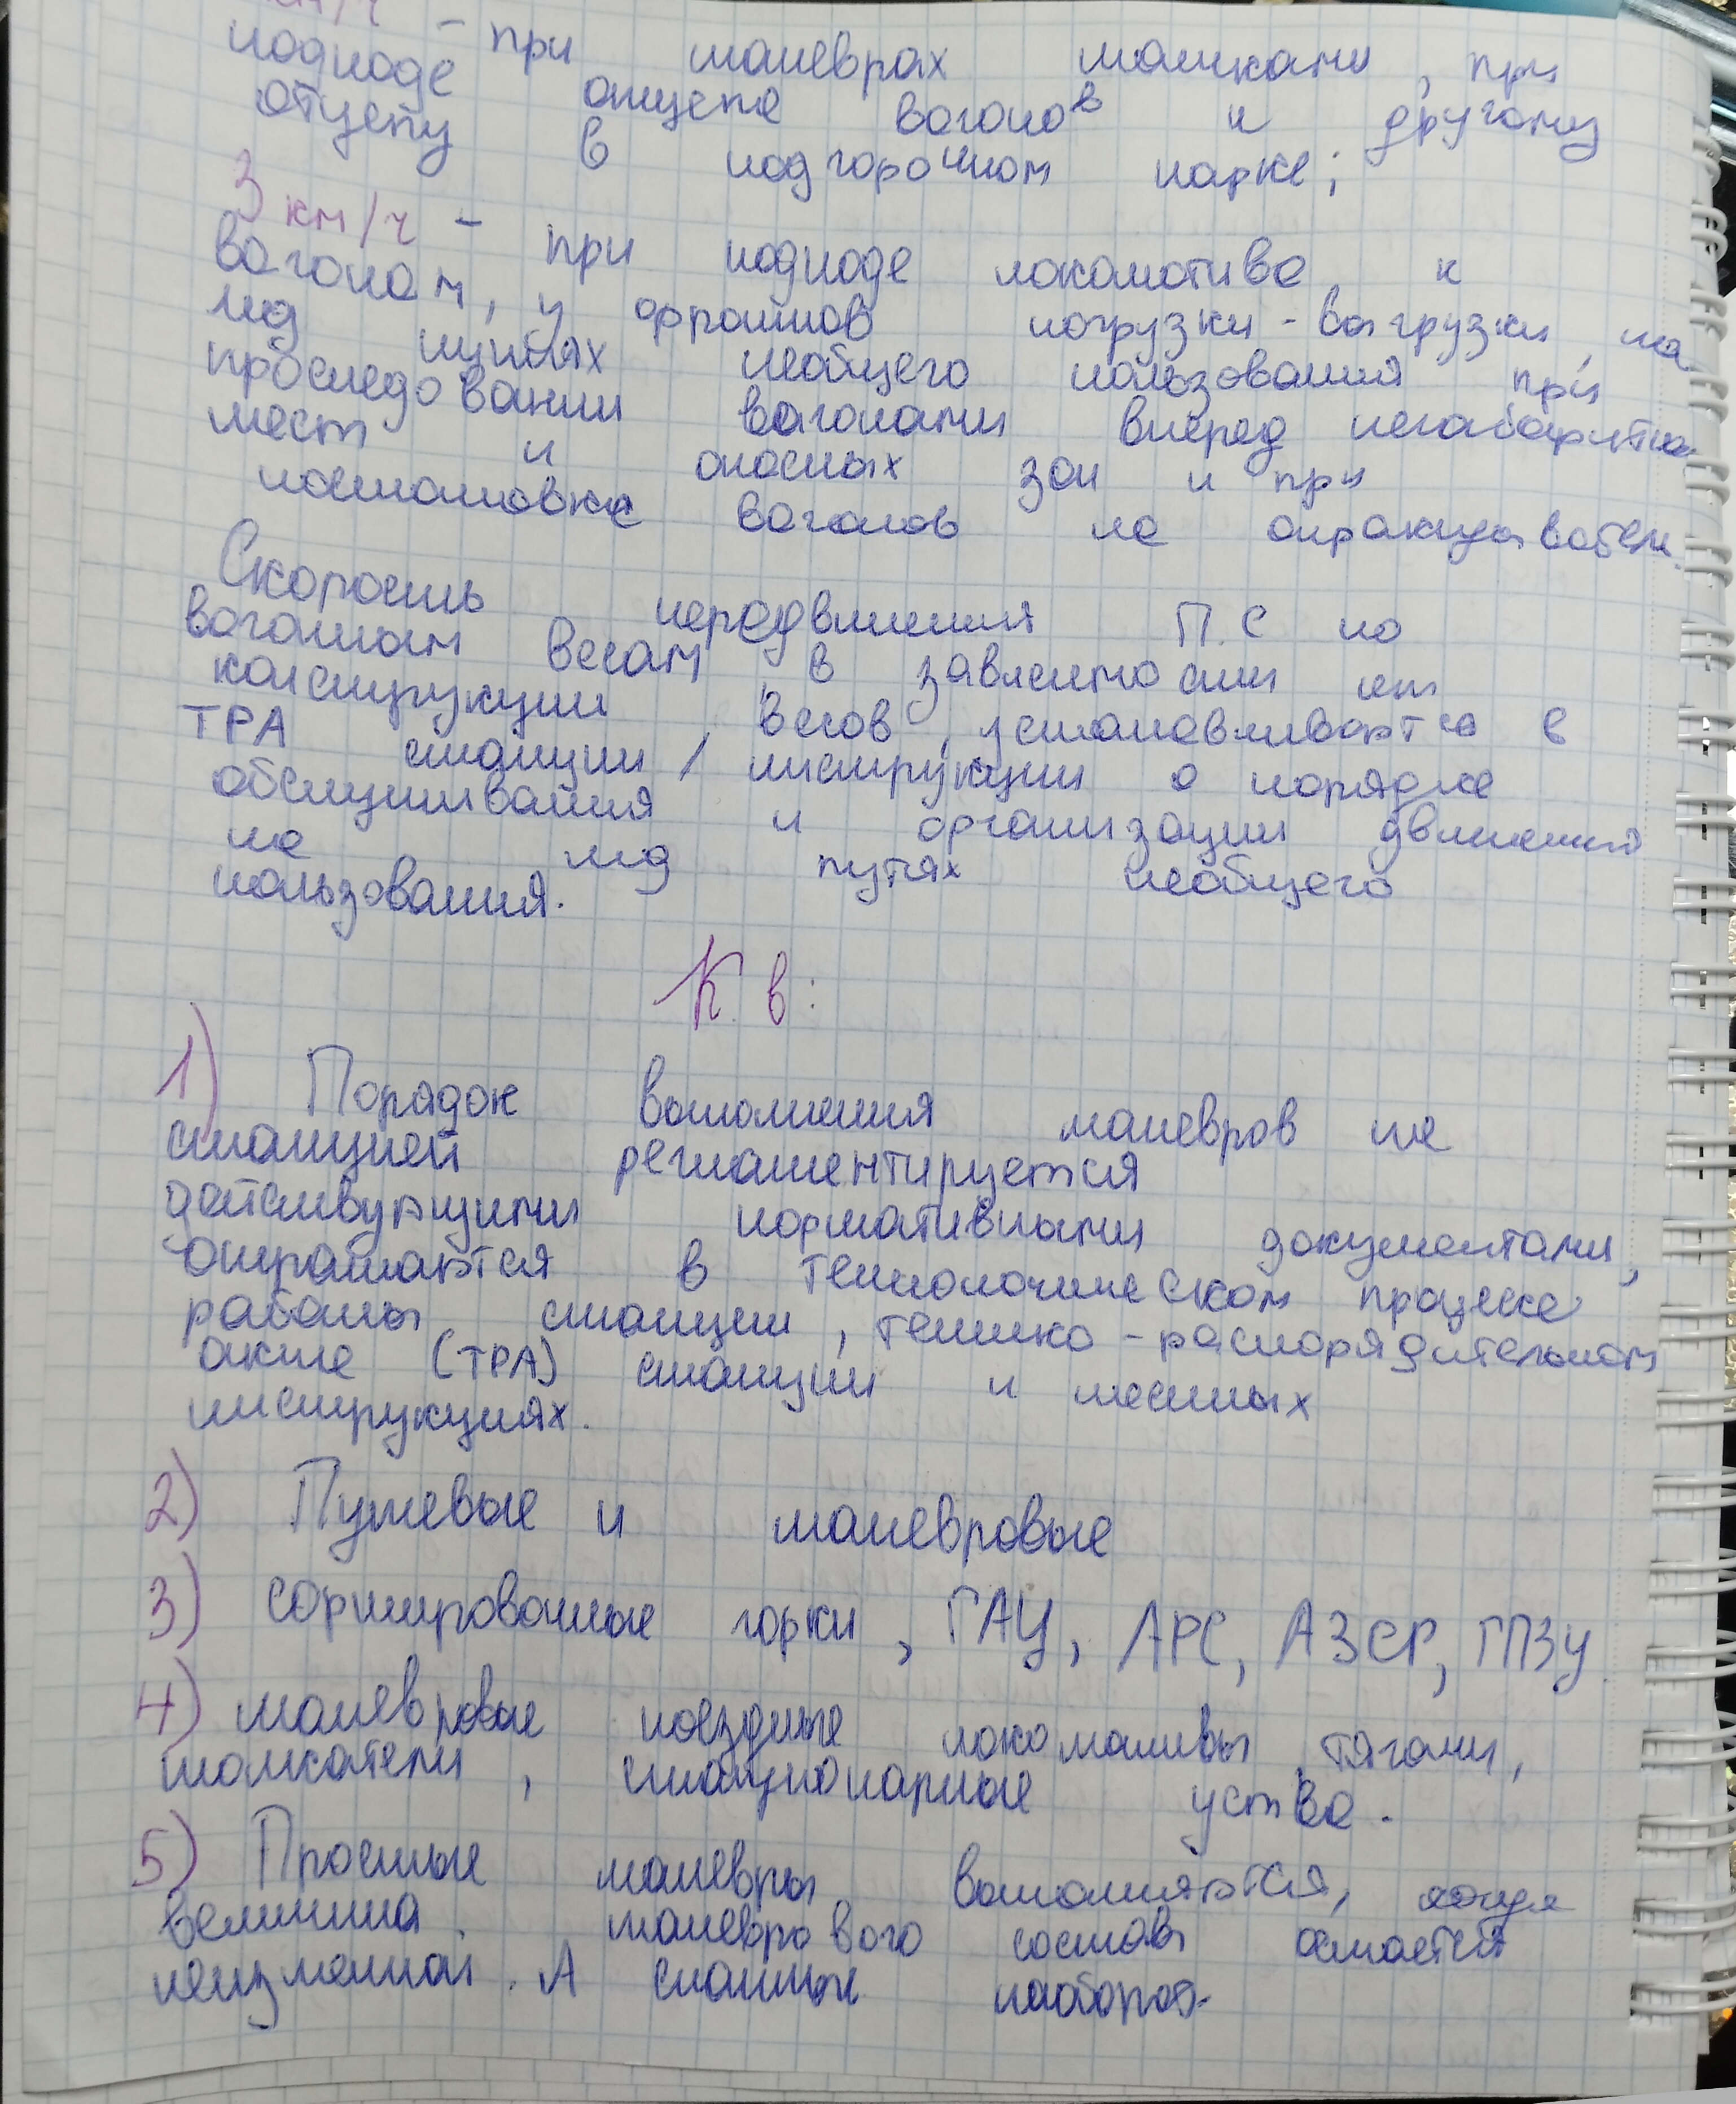 км/ч – при маневрах толчками, при
подходе отцепа вагонов к другому
отцепу в подгорочном парке;
3 км/ч – при подходе локомотива к
вагонам, у фронтов погрузки-выгрузки, на
жд путях необщего пользования при
проследовании вагонами вперед негабаритных
мест и опасных зон и при
постановке вагонов на опрокидыватели.
Скорость передвижения П.С по
вагонным весам, в зависимости от
конструкции весов, устанавливается в
ТРА станции / инструкции о порядке
обслуживания и организации движений
на жд путях необщего
пользования.
К.в:
1) Порядок выполнения маневров на
станцией регламентируется
действующими нормативными документами,
отражаются в технологическом процессе
работы станции, технико-распорядительном
акте (ТРА) станции и местных
инструкциях.
2) Путевые и маневровые
3) сортировочные горки, ГАЦ, АРС, АЗСР, ГПЗУ
4) маневровые поездные локомотивы, тягачи,
толкатели, стационарные уства.
5) Простые маневры выполняются, когда
величина маневрового состава остается
неизменной. А сложные наоборот.